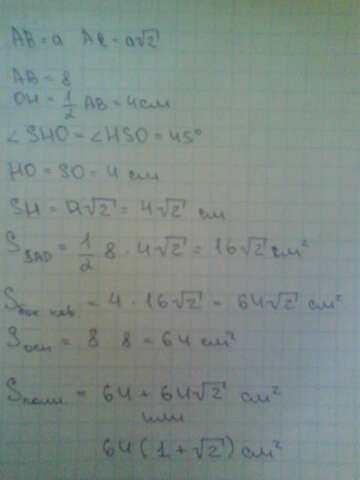 AB = a AC = a√2
AB = 8
OH = 1/2 AB = 4 см
∠ SHO = ∠HSO = 45°
HO = SO = 4 см
SH = a√2 = 4√2 см
S SAD = 1/2 8 · 4√2 = 16√2 см²
S бок пов = 4 · 16√2 = 64√2 см²
S осн = 8 8 = 64 см²
S полн = 64 + 64√2 см²
или
64(1+√2) см²